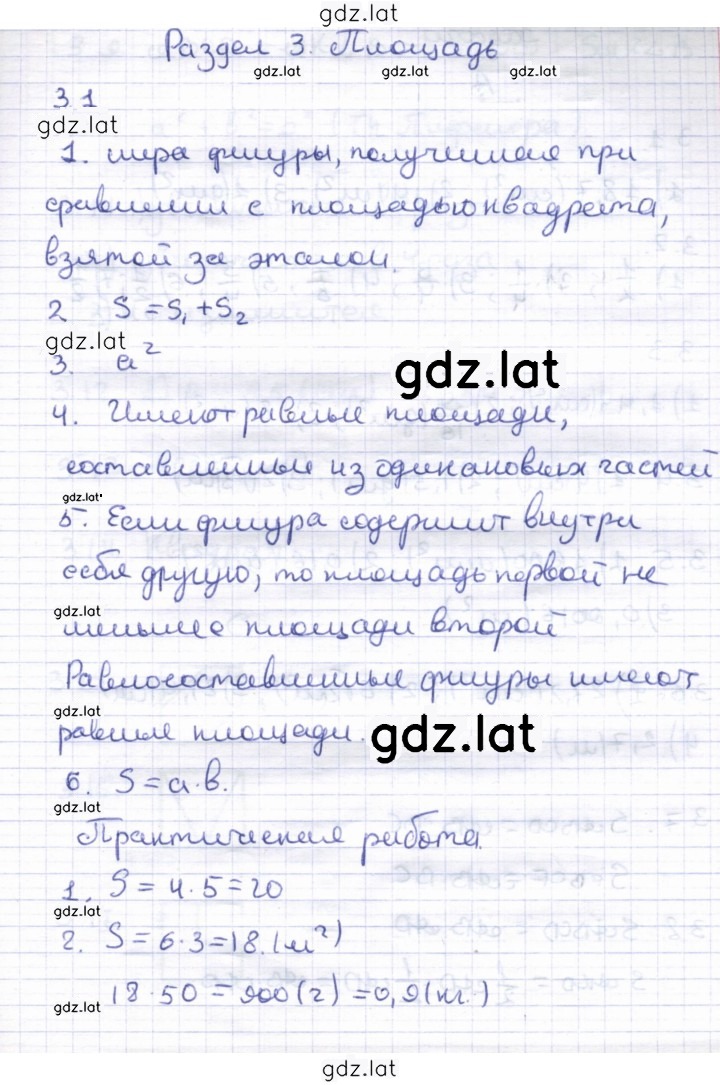 gdz.lat
Раздел 3. Площадь
gdz.lat gdz.lat gdz.lat
3.1
gdz.lat
1. мера фигуры, полученная при
сравнении с площадью квадрата,
взятой за эталон.
2 S = S₁ + S₂
gdz.lat
3. a²
gdz.lat
4. Имеют равные площади,
составленные из одинановых частей
gdz.lat
5. Если фигура содержит внутри
себя другую, то площадь первой не
gdz.lat
меньше площади второй
Равносоставленные фигуры имеют
gdz.lat
равные площади.
gdz.lat
6. S = a·b.
gdz.lat
Практическая работа.
1. S = 4·5 = 20
gdz.lat
2. S = 6·3 = 18 (м²)
18·50 = 900 (г) = 0,9 (кг.)
gdz.lat
gdz.lat